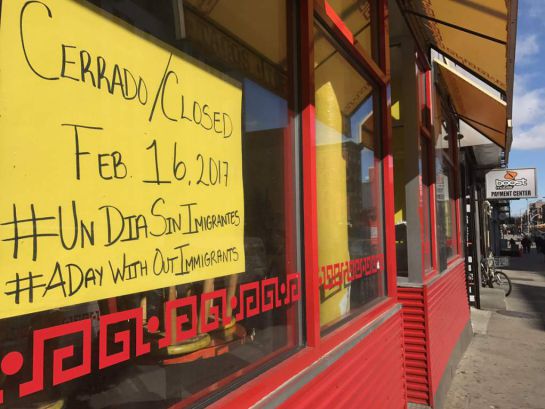 CERRADO/CLOSED
FEB. 16, 2017
#UN DIA SIN IMIGRANTES
#A DAY WITH OUT IMMIGRANTS
boost
PAYMENT CENTER